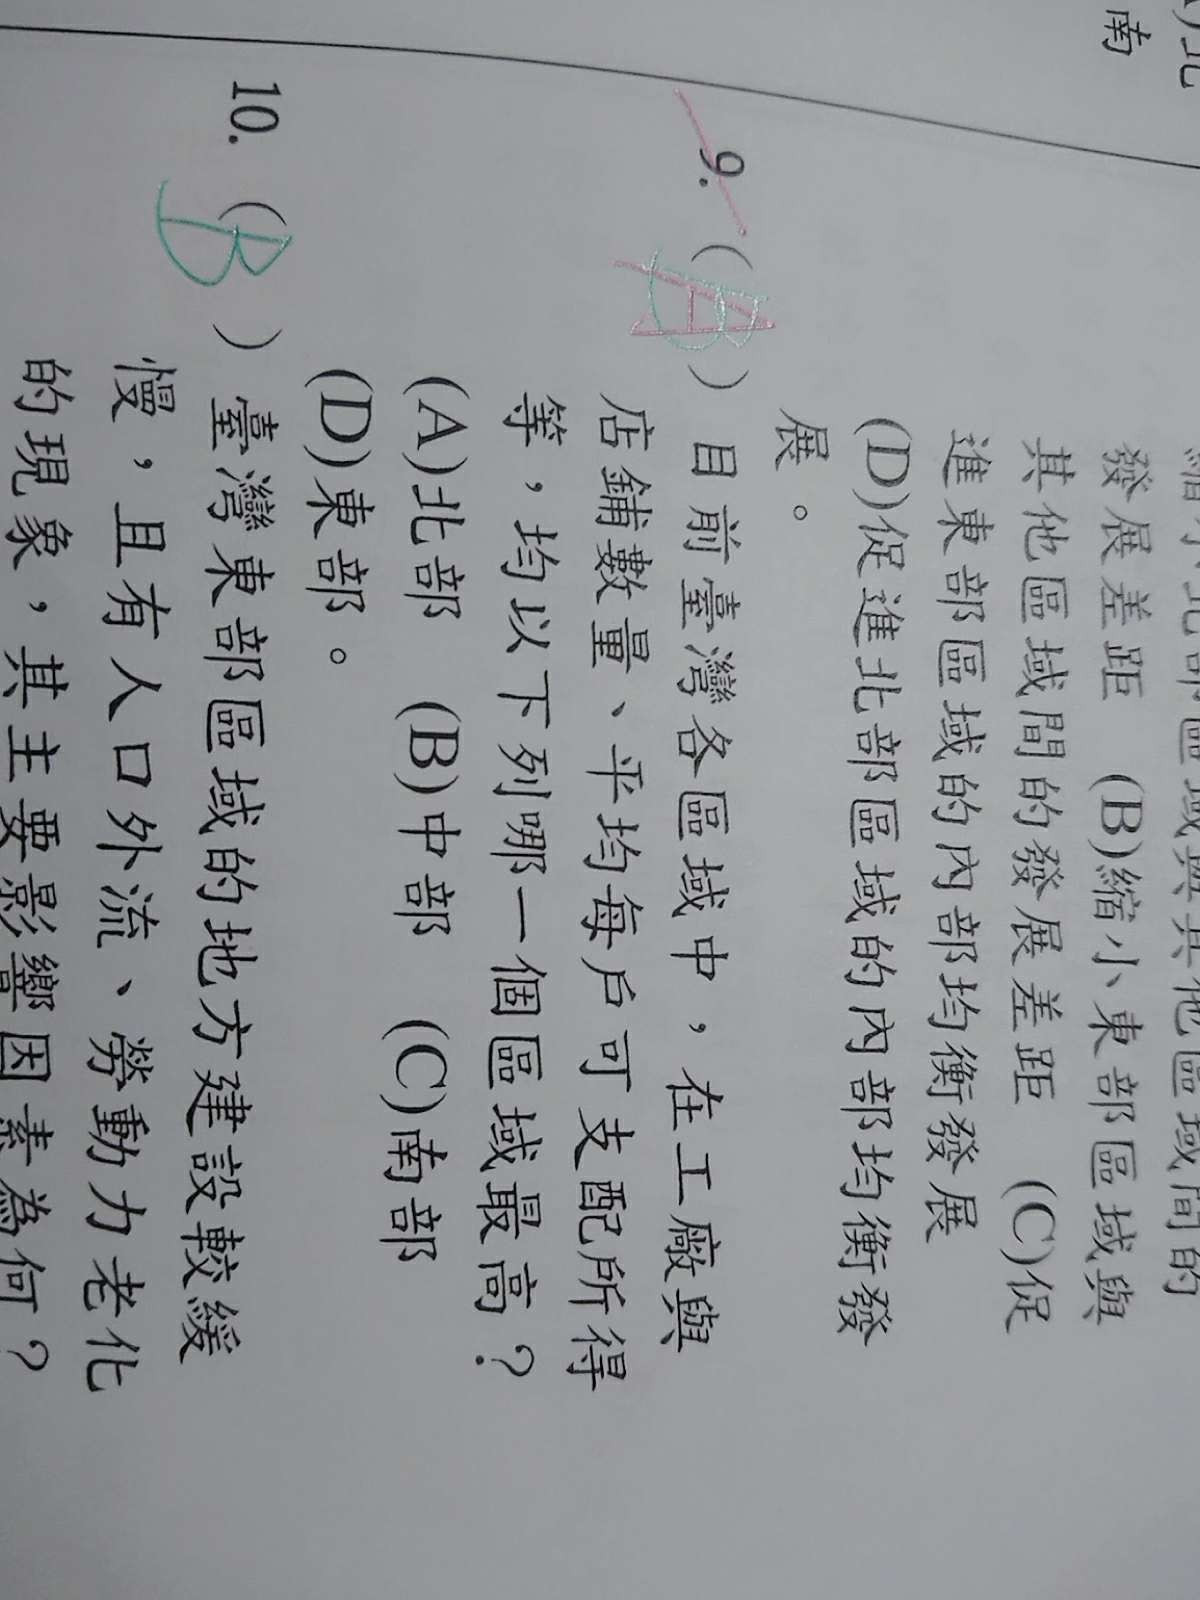 北
南
縮小北部區域與其他區域間的
發展差距 (B)縮小東部區域與
其他區域間的發展差距 (C)促
進東部區域的內部均衡發展
(D)促進北部區域的內部均衡發
展。
9. ( ) 目前臺灣各區域中，在工廠與
店鋪數量、平均每戶可支配所得
等，均以下列哪一個區域最高？
(A)北部 (B)中部 (C)南部
(D)東部。
10. (B) 臺灣東部區域的地方建設較緩
慢，且有人口外流、勞動力老化
的現象，其主要影響因素為何？